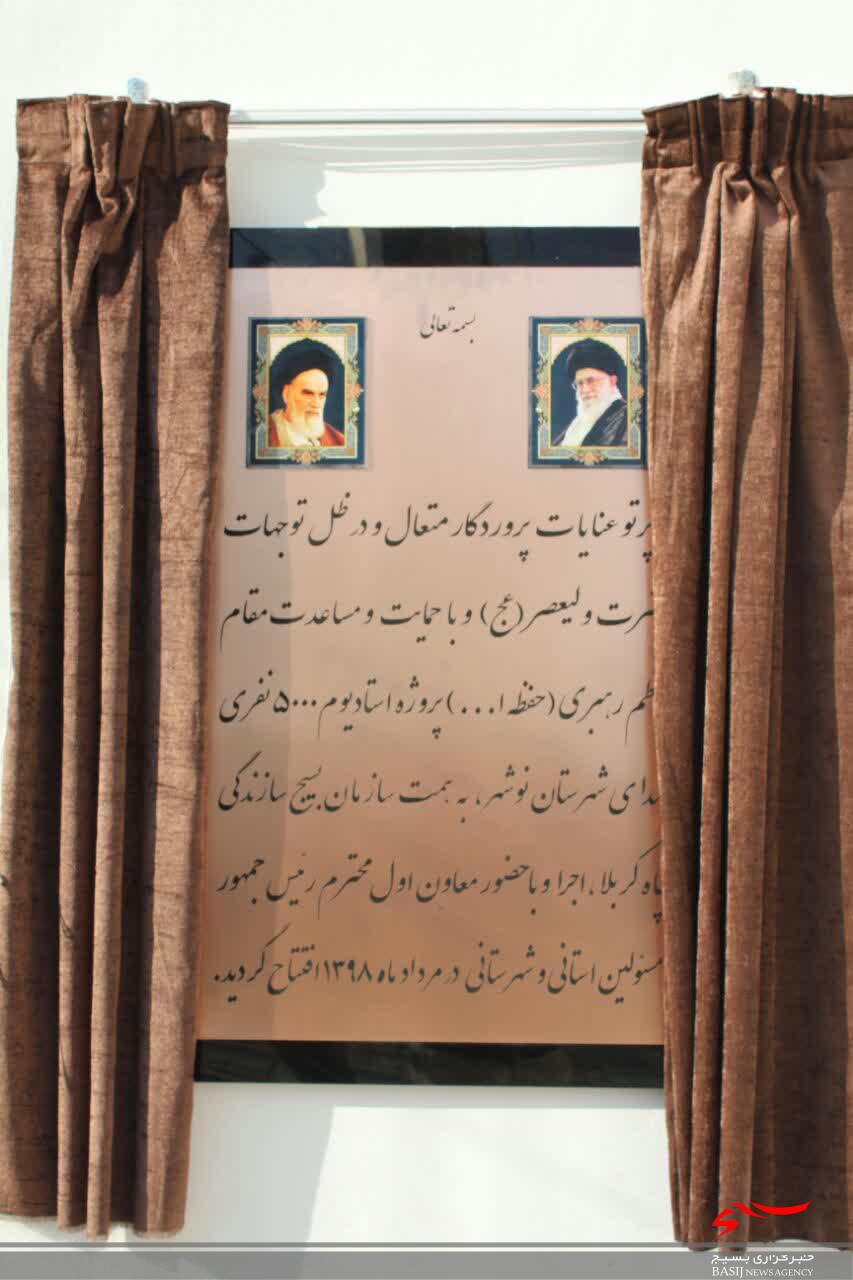 بسمه تعالی
پرتو عنایات پروردگار متعال و در ظل توجهات
ولیعصر (عج) و با حمایت و مساعدت مقام
رهبری (حفظه ا...) پروژه استادیوم ۵۰۰۰ نفری
شهرستان نوشهر، به همت سازمان بسیج سازندگی
کربلا، اجرا و با حضور معاون اول محترم رئیس جمهور
مسئولین استانی و شهرستانی در مرداد ماه ۱۳۹۸ افتتاح گردید.
بسیج
خبرگزاری بسیج
BASIJ NEWS AGENCY